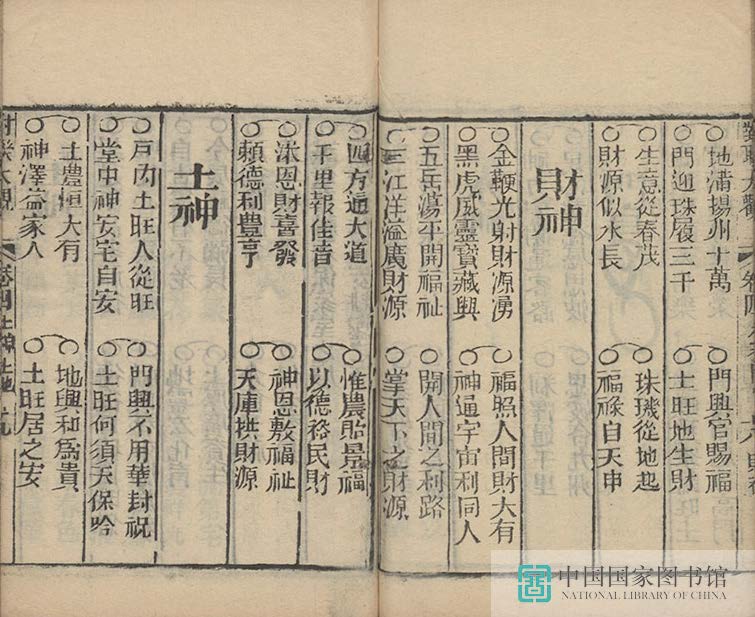 地滿揚州十萬
門興官賜福
門迎珠履三千
土旺地生財
生意從春茂
珠璣從地起
財源似水長
福祿自天申
財神
金鞭光射財源湧
福照人間財大有
黑虎威靈寶藏興
神通宇宙利同人
五岳蕩平開福祉
開人間之利路
三江洋溢廣財源
掌天下之財源
四方通大道
惟農貽景福
千里報佳音
以德裕民財
沐恩財喜發
神恩敷福祉
賴德利豊亨
天庫拱財源
土神
戶內土旺人從旺
門興不用華封祝
堂中神安宅自安
土旺何須天保吟
土豊恒大有
地興和為貴
神澤益家人
土旺居之安
卷四 土神
中国国家图书馆
NATIONAL LIBRARY OF CHINA